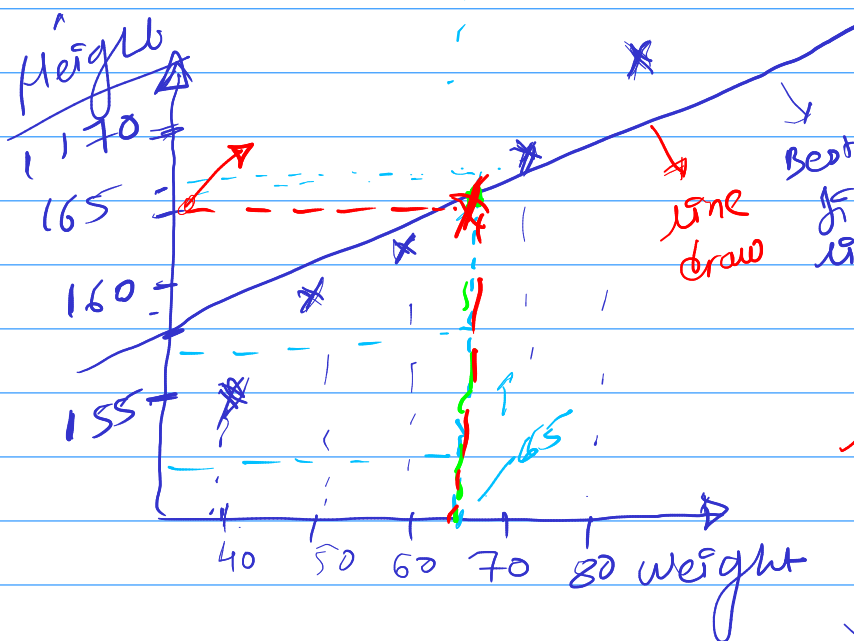 Height
170
165
160
155
40 50 60 70 80 weight
65
line
draw
Best